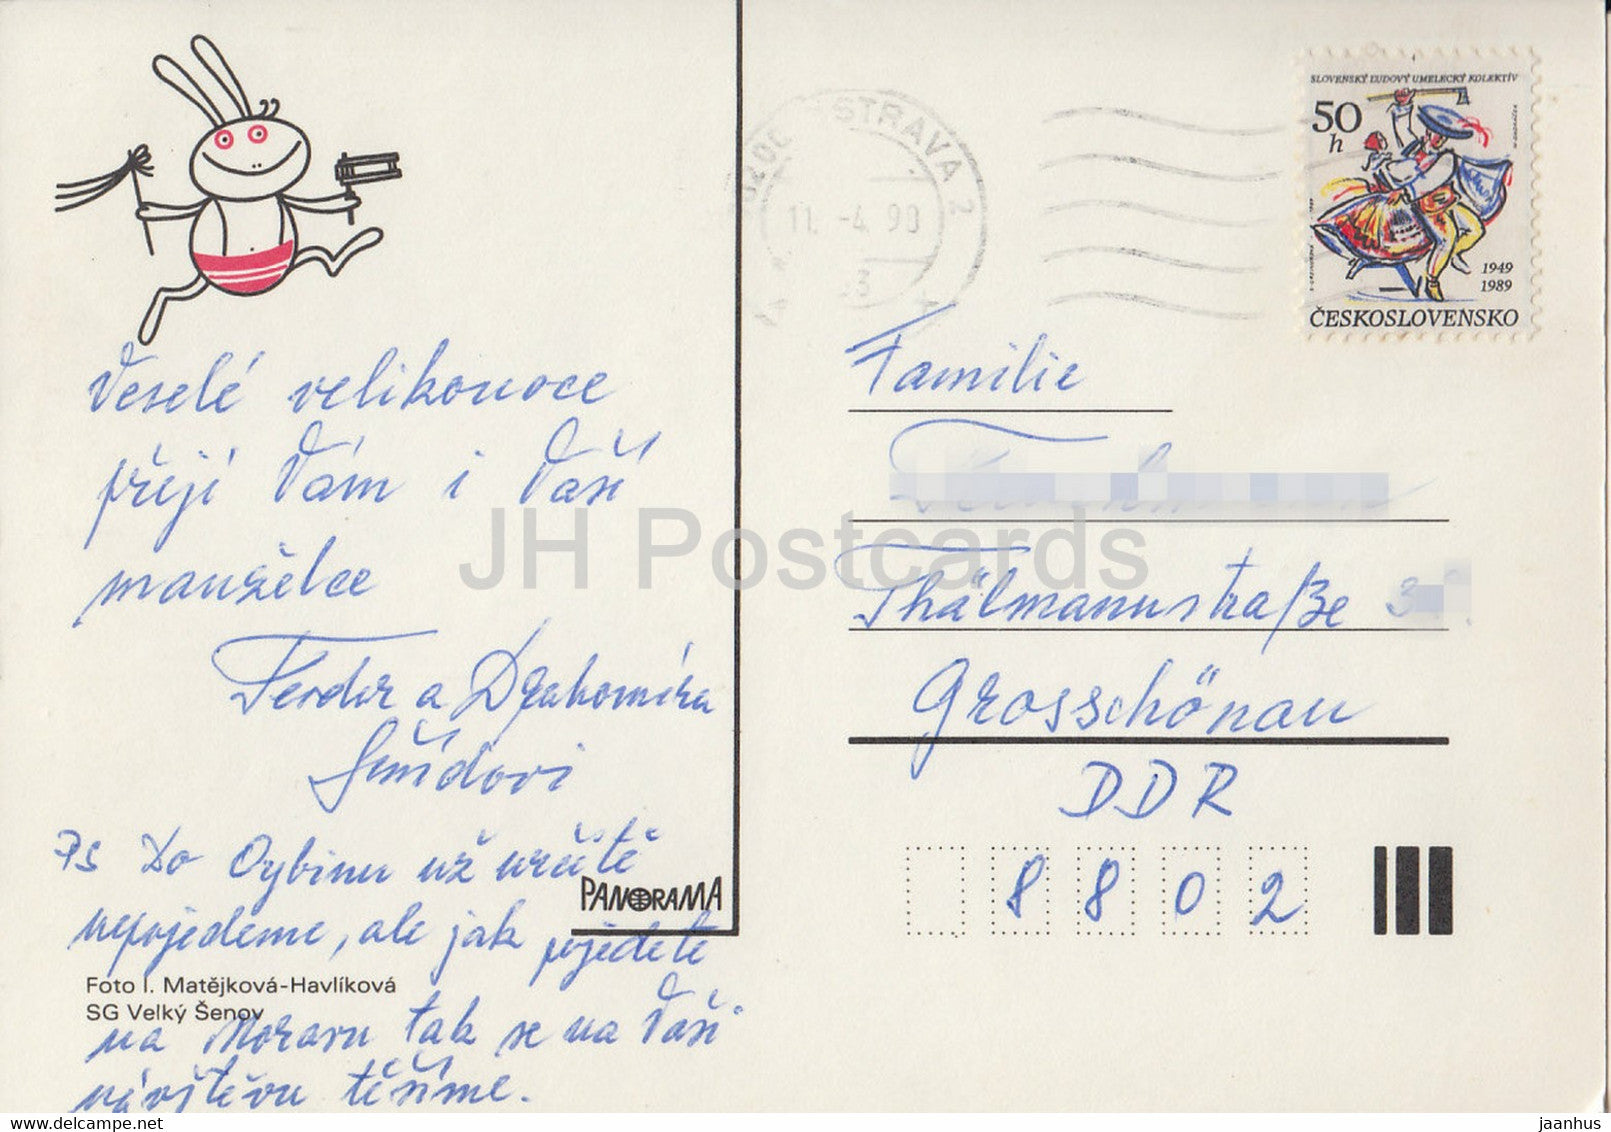 Veselé velikonoce
přejí Vám i Vaší
manželce
Ferda a Drahomíra
PS Do Oybinu už určitě
nepojedeme, ale jak pojedete
na Moravu tak se na Vaši
návštěvu těšíme.
PANORAMA
Foto I. Matějková-Havlíková
SG Velký Šenov
OSTRAVA 2
11.-4.90
SLOVENSKÝ ĽUDOVÝ UMELECKÝ KOLEKTÍV
50
h
1949
1989
ČESKOSLOVENSKO
Familie
Thälmannstraße
Grosschönau
DDR
8 8 0 2
JH Postcards
www.delcampe.net
jaanhus